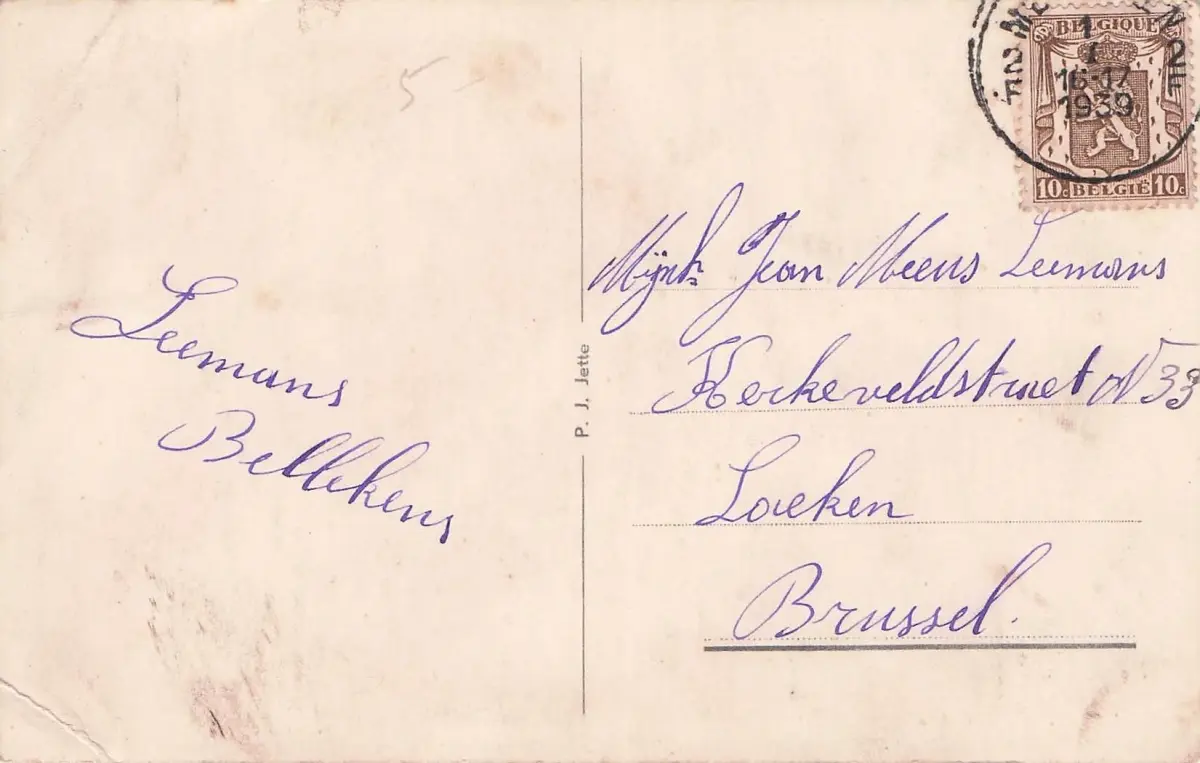 5-
Leemans
Bellekens
P. J. Jette
BELGIQUE
10c BELGIË 10c
1
I
16-17
1939
2
Mijnh Jean Meeus Leemans
Kerkeveldstraet N 33
Laeken
Brussel.